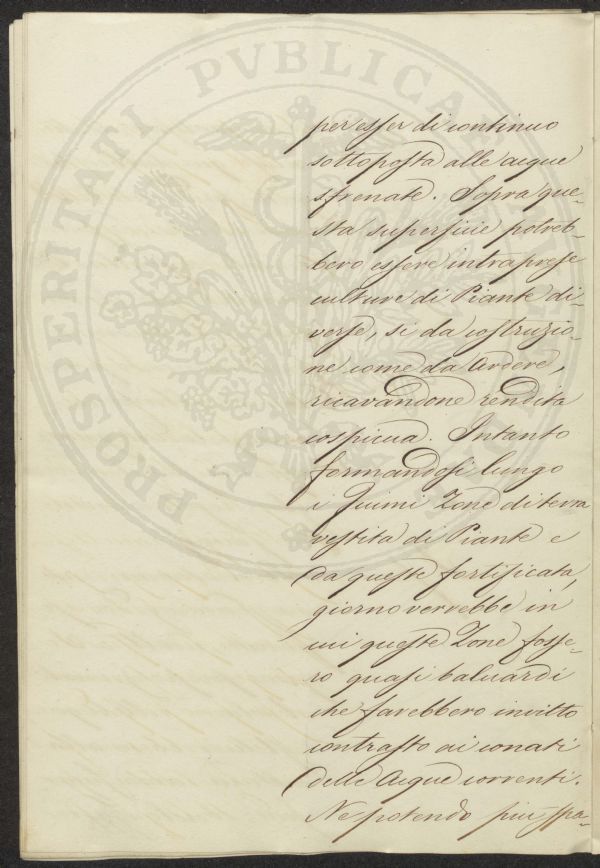 PROSPERITATI PVBLICAE
per esser di continuo
sottoposta alle acque
sfrenate. Sopra que-
sta superficie potreb-
bero essere intraprese
culture di Piante di-
verse, si da costruzio-
ne come da Ardere,
ricavandone rendita
cospicua. Intanto
formandosi lungo
i Fiumi Zone di terra
vestita di Piante e
da queste fortificata,
giorno verrebbe in
cui queste Zone fosse-
ro quasi baluardi
che farebbero invitto
contrasto ai conati
delle Acque correnti.
Ne potendo piu spa-